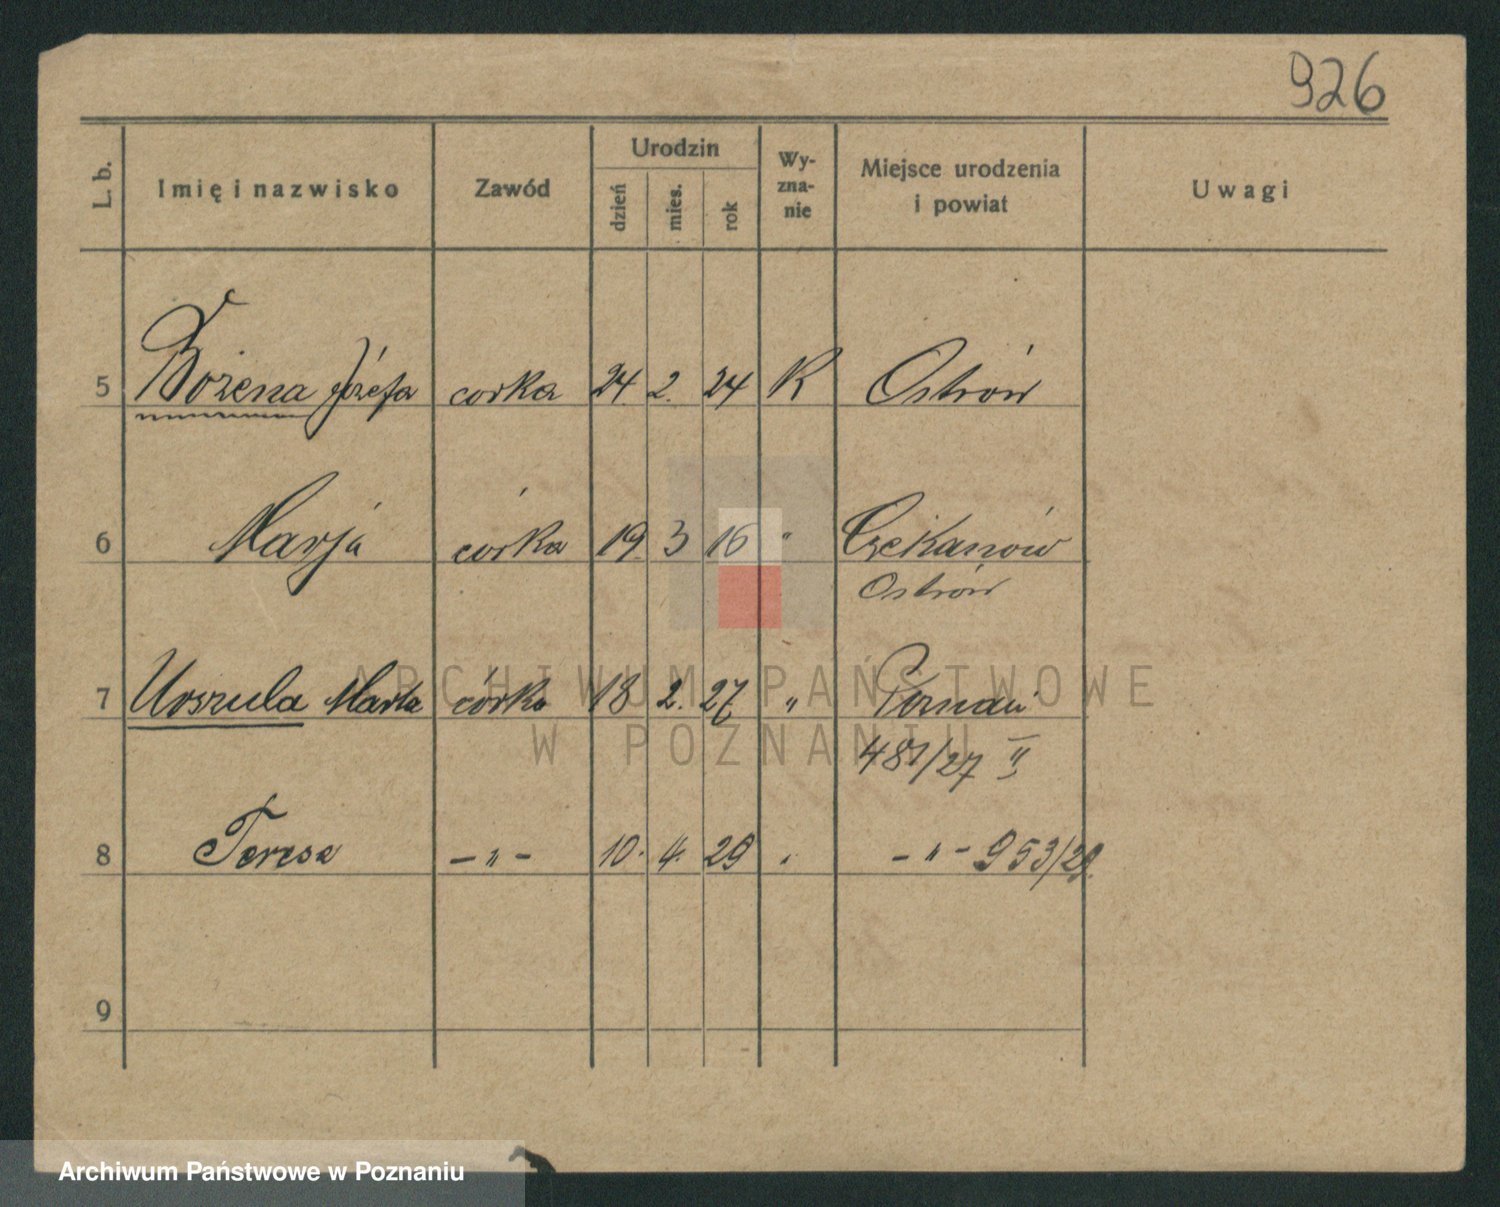 926
L. b.
Imię i nazwisko
Zawód
Urodzin
dzień
mies.
rok
Wy-
zna-
nie
Miejsce urodzenia
i powiat
Uwagi
5 Bożena Józefa corka 24. 2. 24 K Ostrów
6 Marja córka 19. 3 16 " Czekanów
Ostrów
7 Urszula Marta córka 18 2. 27 " Poznań
481/27 II
8 Teresa – " – 10. 4. 29 " – " – 953/29.
9
ARCHIWUM PAŃSTWOWE
W POZNANIU
Archiwum Państwowe w Poznaniu